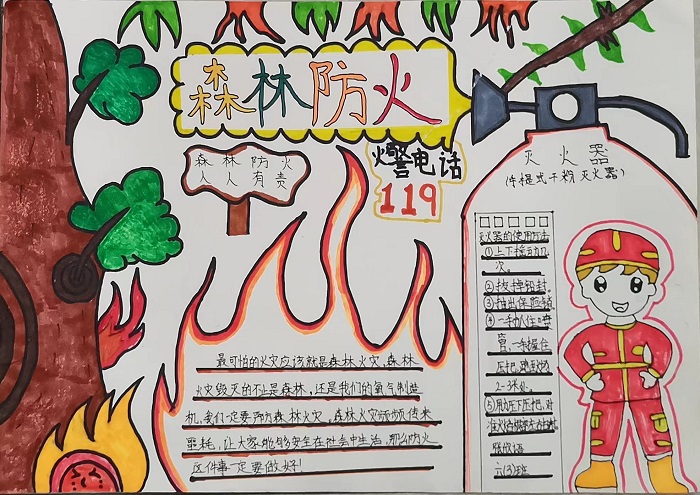 森林防火
森林防火
人人有责
火警电话
119
灭火器
(手提式干粉灭火器)
灭火器的使用方法
①上下摇动几
次。
②拔掉铅封。
③抽出保险销
④一手握住喷
管,一手握住
压把,跑到
2-3米处。
⑤用力下压把,对
六(3)班
最可怕的火灾应该就是森林火灾,森林
火灾毁灭的不止是森林,还是我们的氧气制造
机,我们一定要严防森林火灾,森林火灾频频传来
噩耗,让大家能够安全在社会中生活,那么防火
这件事一定要做好!